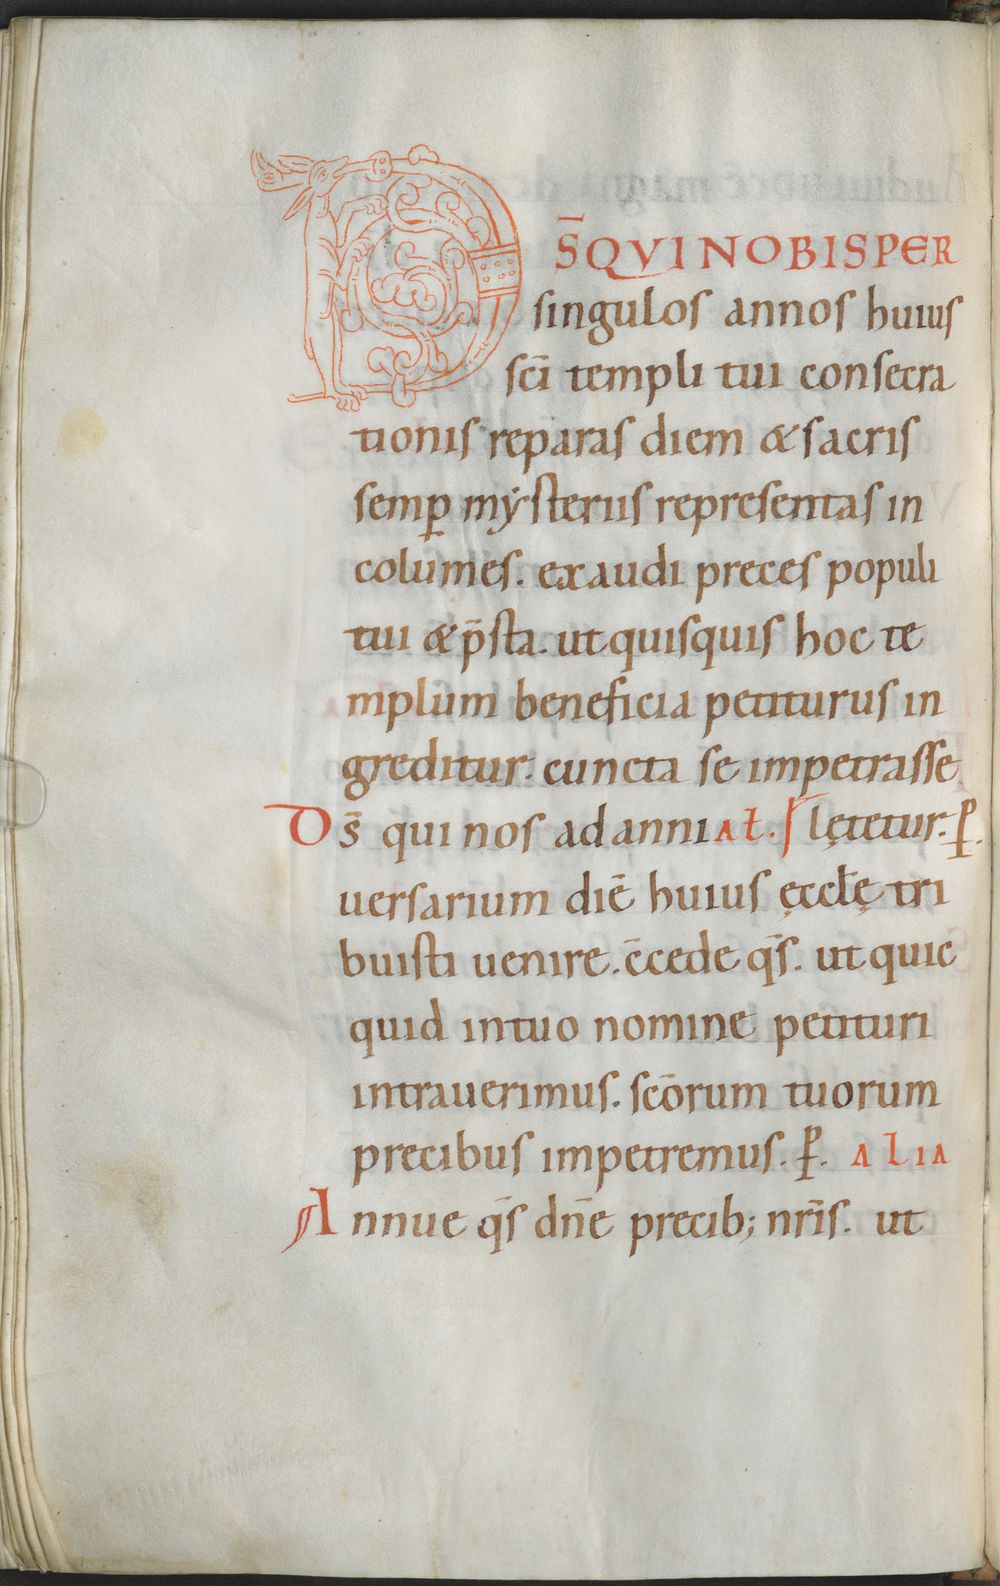 DS̄ QVI NOBIS PER
singulos annos huius
sc̄i templi tui consecra
tionis reparas diem & sacris
semꝑ mẏsteriis representas in
columes. exaudi preces populi
tui & p̄sta. ut quisquis hoc te
mplum beneficia petiturus in
greditur. cuncta se impetrasse
Ds̄ qui nos ad anni At. lętetur. P̄.
uersarium diē huius ęccłę tri
buisti uenire. c̄cede qs̄. ut quic
quid in tuo nomine petituri
intrauerimus. sc̄orum tuorum
precibus impetremus. P̄. ALIA
Annue qs̄ dn̄e precib; nr̄is. ut